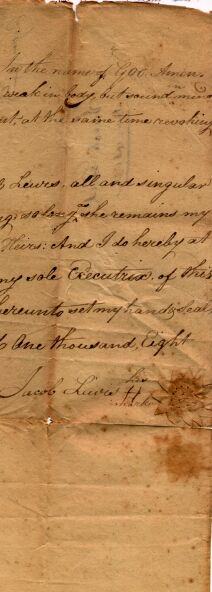 In the name of GOD. Amen.
weak in body, but sound in mind
at the same time revoking
Lewes, all and singular
so long as she remains my
Heirs: And I do hereby at
my sole Executrix, of this
hereunto set my hand & Seal,
One thousand, Eight
Jacob Lewis his
mark